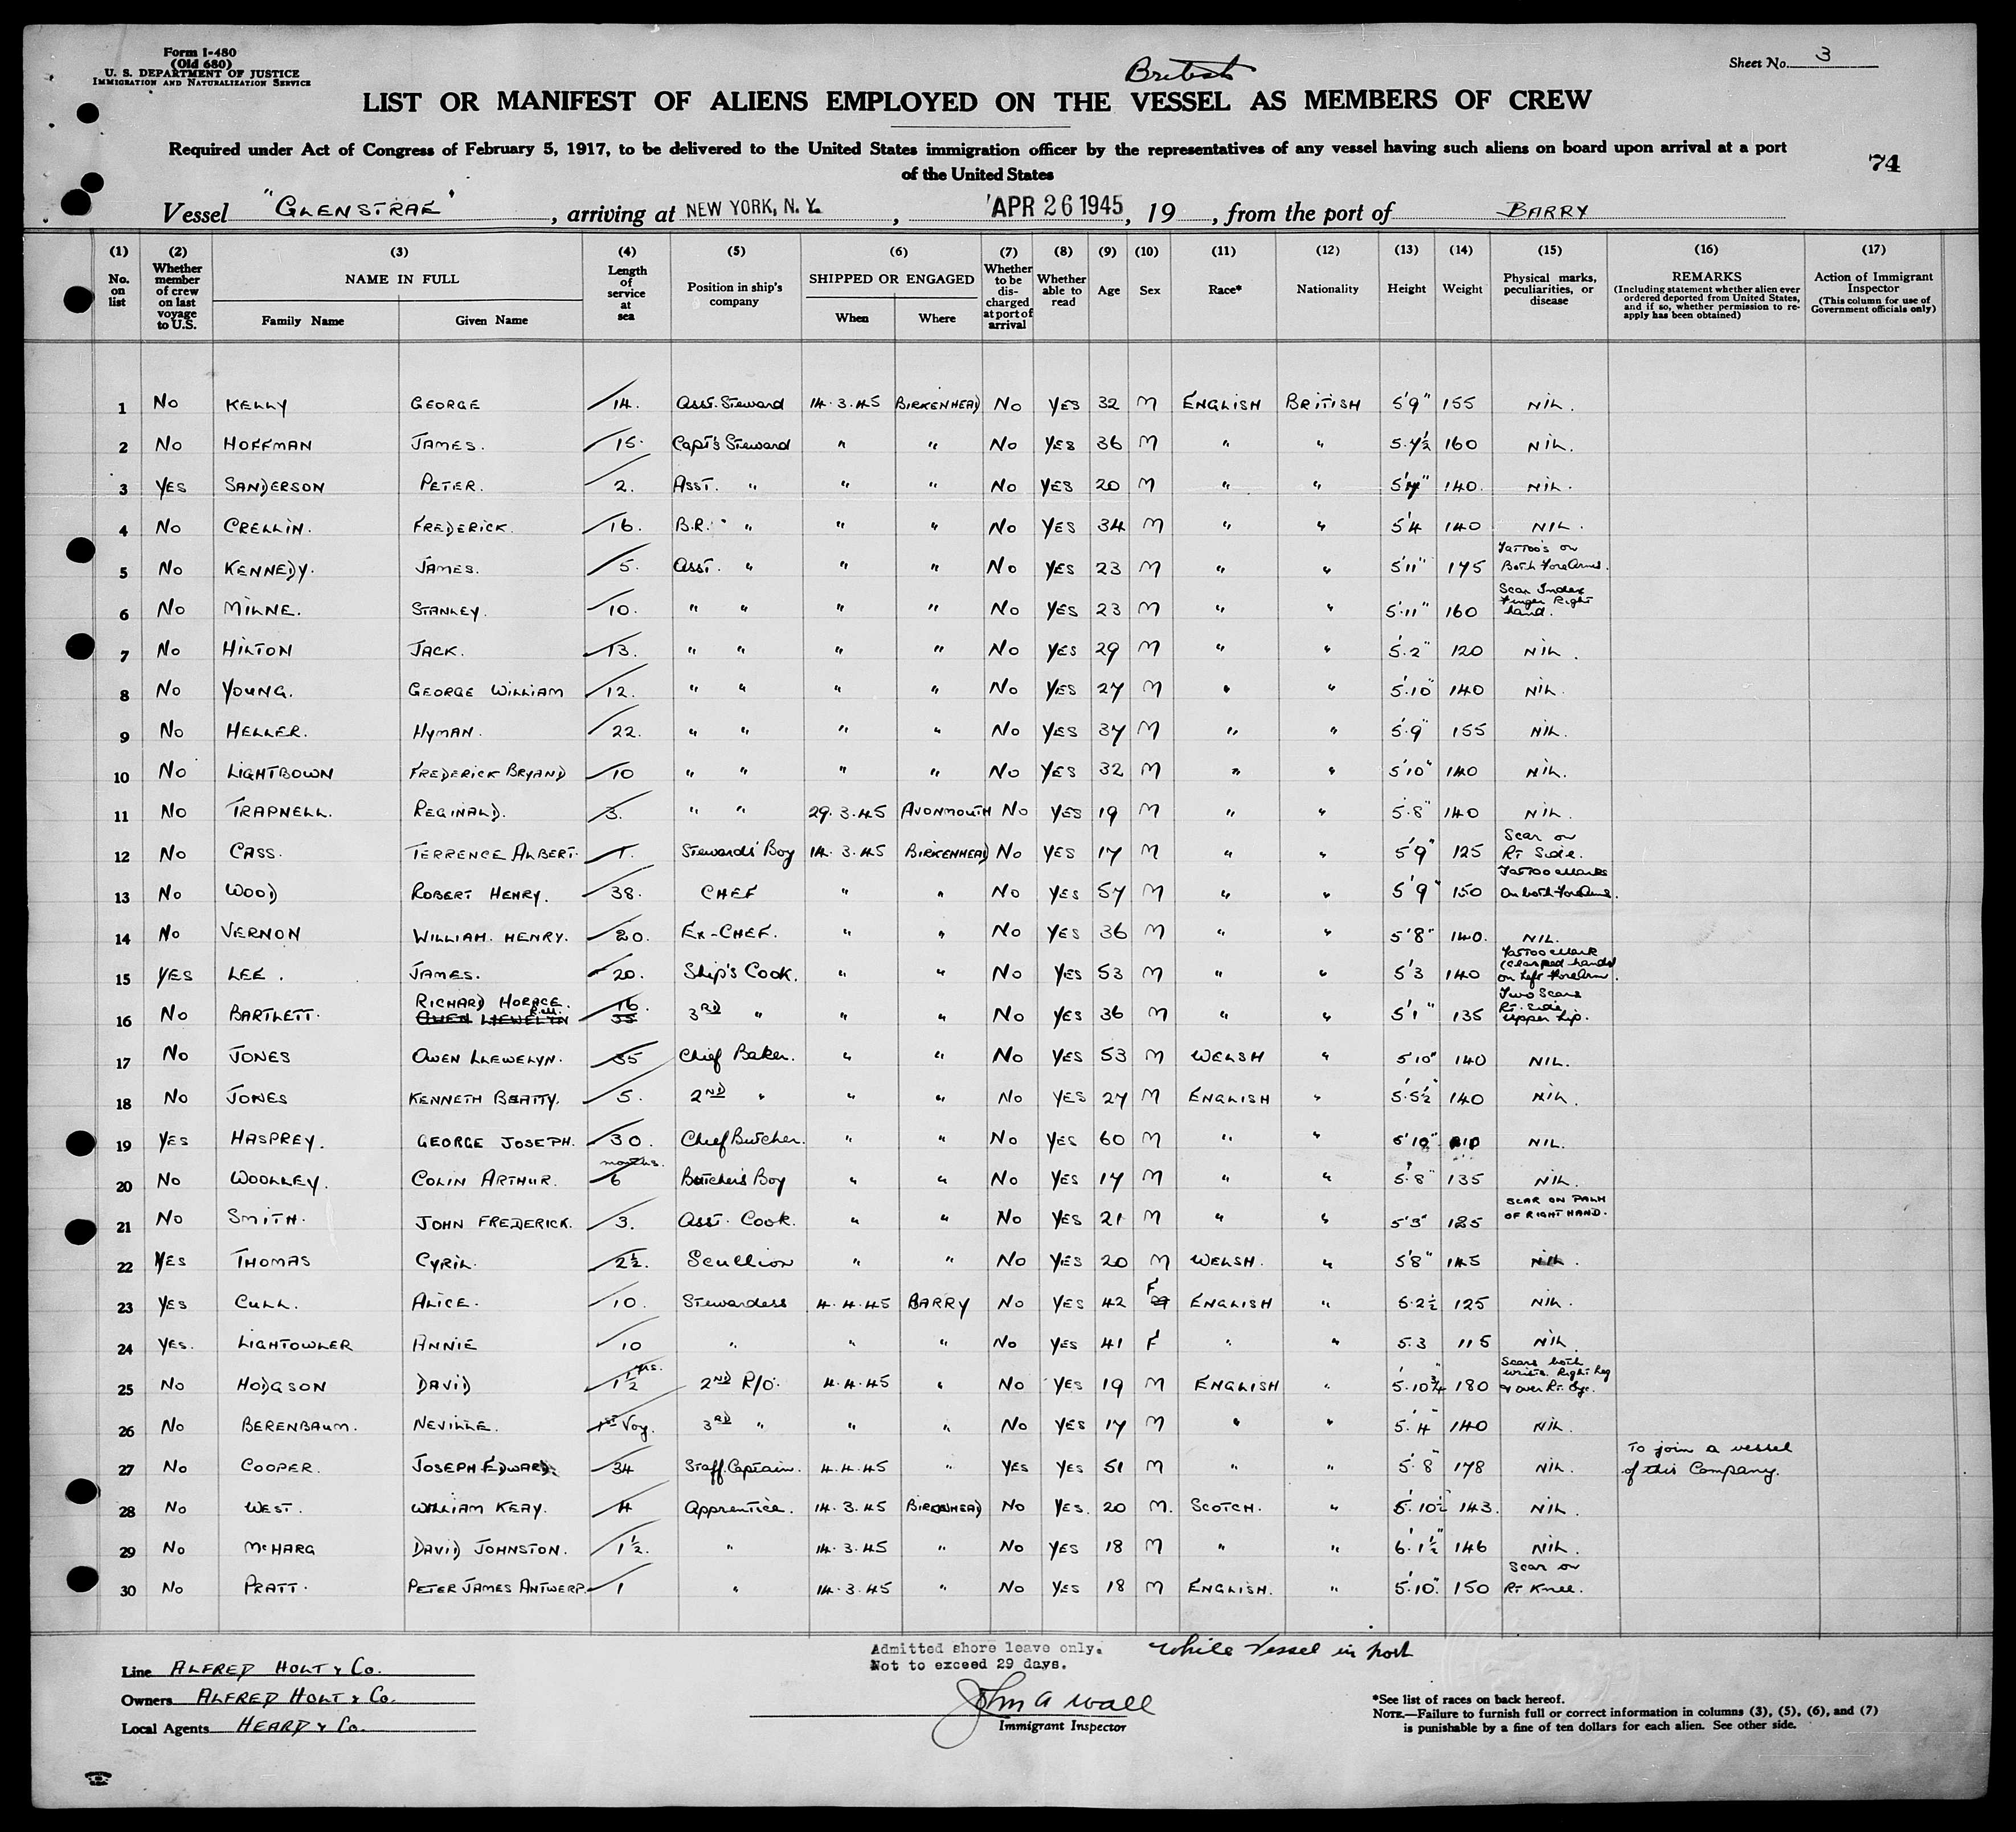 Form I-480
(Old 680)
U. S. DEPARTMENT OF JUSTICE
IMMIGRATION AND NATURALIZATION SERVICE
British
Sheet No. 3
LIST OR MANIFEST OF ALIENS EMPLOYED ON THE VESSEL AS MEMBERS OF CREW
Required under Act of Congress of February 5, 1917, to be delivered to the United States immigration officer by the representatives of any vessel having such aliens on board upon arrival at a port
of the United States
74
Vessel "GLENSTRAE", arriving at NEW YORK, N. Y., APR 26 1945, 19 , from the port of BARRY
(1) No. on list
(2) Whether member of crew on last voyage to U.S.
(3) NAME IN FULL Family Name Given Name
(4) Length of service at sea
(5) Position in ship's company
(6) SHIPPED OR ENGAGED When Where
(7) Whether to be discharged at port of arrival
(8) Whether able to read
(9) Age
(10) Sex
(11) Race*
(12) Nationality
(13) Height
(14) Weight
(15) Physical marks, peculiarities, or disease
(16) REMARKS (Including statement whether alien ever ordered deported from United States, and if so, whether permission to re-apply has been obtained)
(17) Action of Immigrant Inspector (This column for use of Government officials only)
1 No KELLY GEORGE 14. Asst. Steward 14.3.45 BIRKENHEAD No YES 32 M ENGLISH BRITISH 5'9" 155 NIL.
2 No HOFFMAN JAMES. 15. Capt's Steward " " No YES 36 M " " 5'7½ 160 NIL.
3 YES SANDERSON PETER. 2. Asst. " " " No YES 20 M " " 140. NIL.
4 No CRELLIN. FREDERICK. 16. B.R. " " " No YES 34 M " " 5'4 140 NIL.
5 No KENNEDY. JAMES. 5. Asst. " " " No YES 23 M " " 5'11" 175 Tattoo's on Both ForeArms.
6 No MILNE. STANLEY. 10. " " " " No YES 23 M " " 5'11" 160 Scar Index Finger Right hand.
7 No HILTON JACK. 13. " " " " No YES 29 M " " 5'2" 120 NIL.
8 No YOUNG. GEORGE WILLIAM 12. " " " " No YES 27 M " " 5'10" 140 NIL.
9 No HELLER. HYMAN. 22. " " " " No YES 37 M " " 5'9" 155 NIL.
10 No LIGHTBOWN FREDERICK BRYAND 10 " " " " No YES 32 M " " 5'10" 140 NIL.
11 No TRAPNELL. REGINALD. 3. " " 29.3.45 AVONMOUTH No YES 19 M " " 5'8" 140 NIL.
12 No CASS. TERRENCE ALBERT. 1. Stewards' Boy 14.3.45 BIRKENHEAD No YES 17 M " " 5'9" 125 Scar on Rt Side.
13 No WOOD ROBERT HENRY. 38. CHEF " " No YES 57 M " " 5'9" 150 Tattoo Marks On both ForeArms.
14 No VERNON WILLIAM. HENRY. 20. EX-CHEF. " " No YES 36 M " " 5'8" 140. NIL.
15 YES LEE. JAMES. 20. Ship's Cook. " " No YES 53 M " " 5'3 140 Tattoo Mark (Clasped hands) on Left ForeArm.
16 No BARTLETT. RICHARD HORACE. OWEN LLEWELYN 16 35 3RD " " " No YES 36 M " " 5'1" 135 Two Scars Rt. Side Upper Lip.
17 No JONES OWEN LLEWELYN. 35 Chief Baker. " " No YES 53 M WELSH " 5'10" 140 NIL.
18 No JONES KENNETH BEATTY. 5. 2ND " " " No YES 27 M ENGLISH " 5'5½" 140 NIL.
19 YES HASPREY. GEORGE JOSEPH. 30. Chief Butcher. " " No YES 60 M " " 5'10" NIL.
20 No WOOLLEY. COLIN ARTHUR. months. 6 Butcher's Boy " " No YES 17 M " " 5'8" 135 NIL.
21 No SMITH. JOHN FREDERICK. 3. Asst. Cook. " " No YES 21 M " " 5'3" 125 SCAR ON PALM OF RIGHT HAND.
22 YES THOMAS CYRIL. 2½. Scullion " " No YES 20 M WELSH. " 5'8" 145 NIL.
23 YES CULL. ALICE. 10. Stewardess 4.4.45 BARRY No YES 42 F ENGLISH " 5.2½ 125 NIL.
24 YES. LIGHTOWLER ANNIE 10 " " " No YES 41 F " " 5.3 115 NIL
25 No HODGSON DAVID 1½ yrs. 2ND R/O. 4.4.45 " No YES 19 M ENGLISH " 5'.10¾" 180 Scars both wrists. Right Leg & over Rt. Eye.
26 No BERENBAUM. NEVILLE. 1st Voy. 3RD " " " No YES 17 M " " 5'.4" 140 NIL.
27 No COOPER. JOSEPH EDWARD. 34 Staff Captain. 4.4.45 " YES YES 51 M " " 5'8" 178 NIL. To join a vessel of this Company.
28 No WEST. WILLIAM KEAY. 4 Apprentice. 14.3.45 BIRKENHEAD No YES. 20 M. SCOTCH. " 5'.10½" 143. NIL.
29 No McHARG DAVID JOHNSTON. 1½. " 14.3.45 " No YES 18 M " " 6'.1½" 146 NIL.
30 No PRATT. PETER JAMES ANTWERP. 1 " 14.3.45 " No YES 18 M ENGLISH. " 5'.10". 150 Scar on Rt Knee.
Line ALFRED HOLT & Co.
Owners ALFRED HOLT & Co.
Local Agents HEARD & Co.
Admitted shore leave only.
Not to exceed 29 days.
While Vessel in port
John A Wall
Immigrant Inspector
*See list of races on back hereof.
NOTE.—Failure to furnish full or correct information in columns (3), (5), (6), and (7)
is punishable by a fine of ten dollars for each alien. See other side.